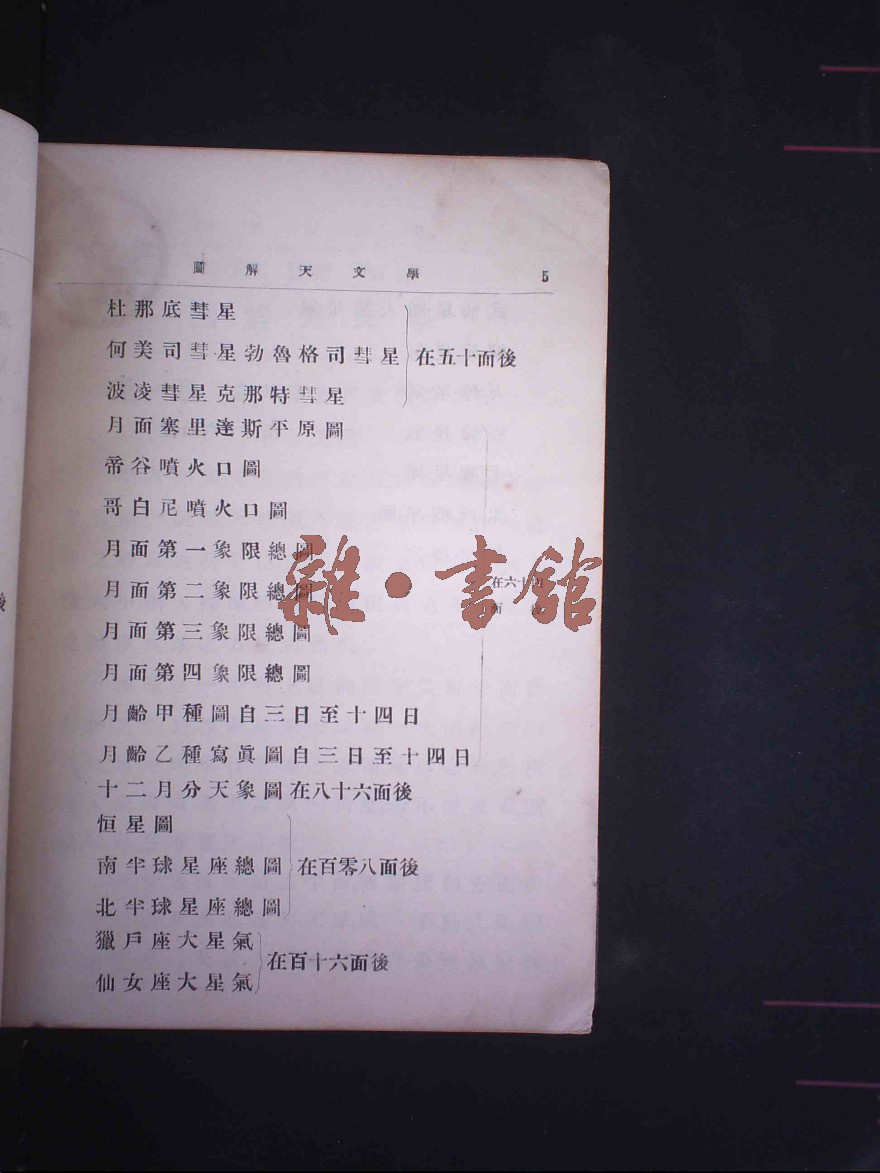 圖解天文學 5
杜那底彗星
何美司彗星勃魯格司彗星
波凌彗星克那特彗星
在五十面後
月面塞里達斯平原圖
帝谷噴火口圖
哥白尼噴火口圖
月面第一象限總圖
月面第二象限總圖
月面第三象限總圖
月面第四象限總圖
月齡甲種圖自三日至十四日
月齡乙種寫眞圖自三日至十四日
在六十四
面後
十二月分天象圖在八十六面後
恒星圖
南半球星座總圖
北半球星座總圖
在百零八面後
獵戶座大星氣
仙女座大星氣
在百十六面後
雜·書館